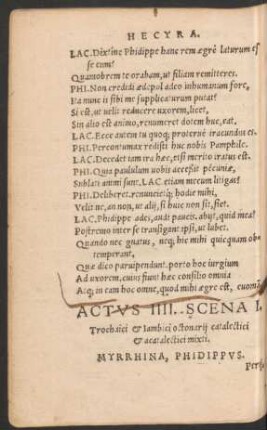 HECYRA.
LAC. Dixi'ne Phidippe hanc rem ægrè laturum es
se eum?
Quamobrem te orabam, ut filiam remitteres.
PHI. Non credidi ædepol adeo inhumanum fore,
Ita nunc is sibi me supplicaturum putat?
Si est, ut velit reducere uxorem, licet,
Sin alio est animo, renumeret dotem huc, eat.
LAC. Ecce autem tu quoq; proteruè iracundus es.
PHI. Percontumax redisti huc nobis Pamphile.
LAC. Decedet iam ira hæc, etsi meritò iratus est.
PHI. Quia paululum uobis accessit pecuniæ,
Sublati animi sunt. LAC. etiam mecum litigas?
PHI. Deliberet, renuncietq; hodie mihi,
Velit ne, an non, ut alij, si huic non sit, siet.
LAC. Phidippe ades, audi paucis. abijt, quid mea?
Postremò inter se transigant ipsi, ut lubet.
Quando nec gnatus, neq; hic mihi quicquam ob
temperant,
Quæ dico parui pendunt. porto hoc iurgium
Ad uxorem, cuius fiunt hæc consilio omnia
Atq; in eam hoc omne, quod mihi ægre est, euomã.
ACTVS IIII. SCENA I.
Trochaici & Iambici octonarij catalectici
& acatalectici mixti.
MYRRHINA, PHIDIPPVS.